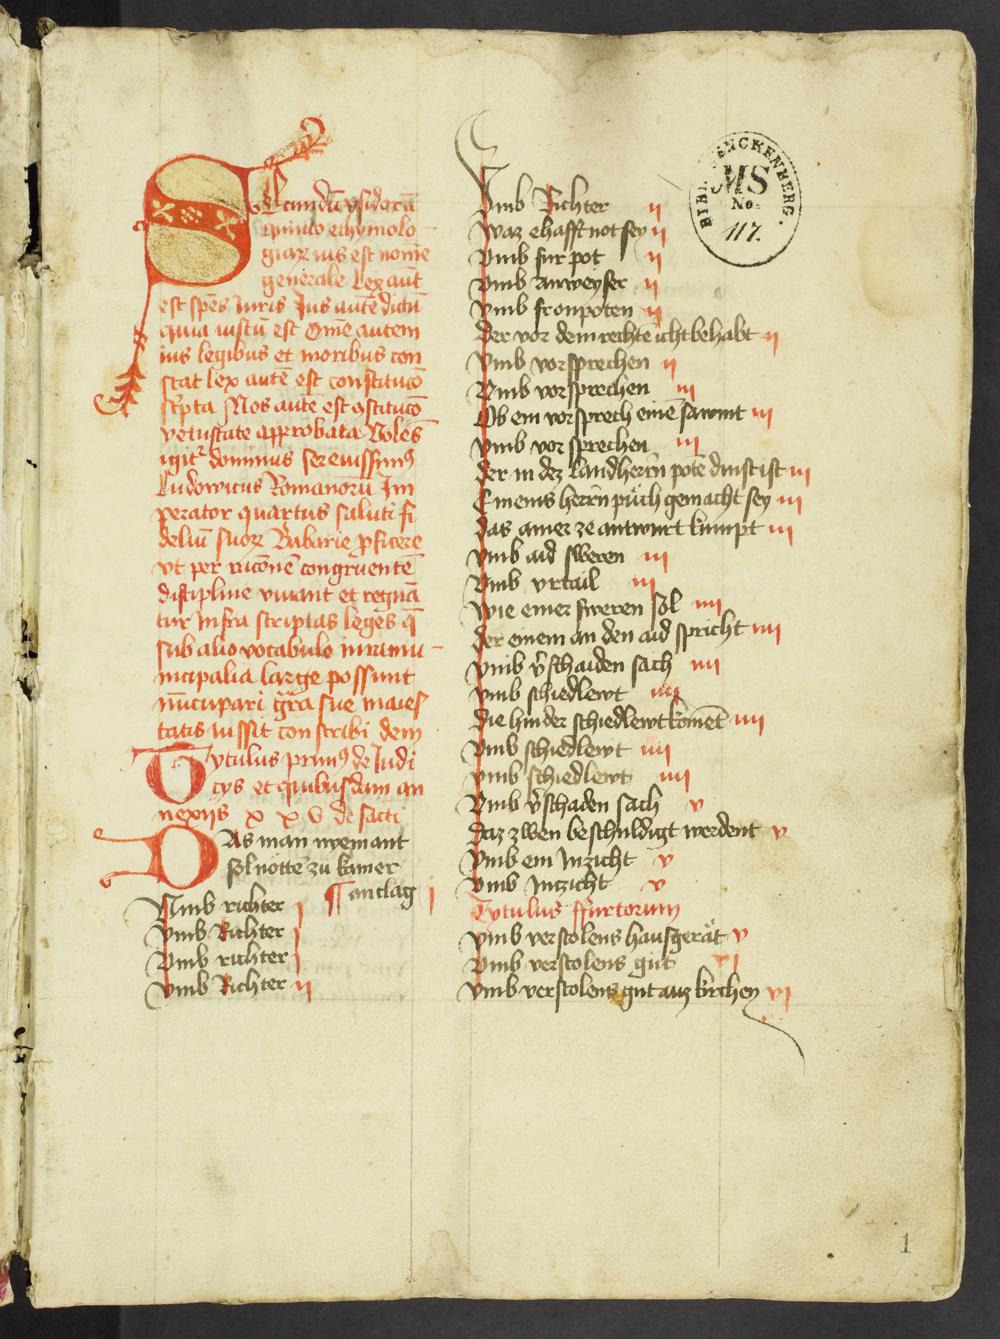 SEcundū ysidorū
quinto ethymolo
giaꝝ ius est nomē
generale Lex aūt
est spēs Iuris Ius autē dictū
quia iustū est Om̄e autem
ius legibus et moribus con
stat lex autē est constitucō
sc̄pta Mos autē est ꝯstitucō
vetustate approbata Volēs
igit᷑ dominus serenissimꝰ
Ludowicus Romanorū Im
perator quartus saluti fi
deliū suoꝝ Babarie ꝓficere
vt per vicōnē congruentē
disciplīe viuant et regnā
tur Infra scriptas leges q̄
sub alio vocabulo iuramu
nicipalia large possunt
nūcupari gr̄a sue maies
tatis iussit conscribi dem
Tytulus primꝰ de Iudi
cys et quibusdam an
nexys x x v de facti
DAs man nyemant
sol nötte zu kainer
anclag i
Vmb richter i
Vmb Richter i
Vmb richter i
Vmb Richter ii
Vmb Richter ii
Waz ehafft not sey ii
Vmb fur pot ii
Vmb anweyser ii
Vmb fronpoten ii
Der vor dem rechtē icht behabt ii
Vmb vorsprechen ii
Vmb vorsprechen iii
Ob ein vorsprech einē sawmt iii
Vmb vor sprechen iii
Der in dez landherrn potē dinst ist iii
Eineins herrn püch gemacht sey iii
Das ainer ze antwurt kumpt iii
Vmb aid sweren iii
Vmb vrtail iii
Wie einer sweren sol iiii
Der einem an den aid spricht iiii
Vmb v̄schaiden sach iiii
Vmb schiedlewt iiii
Die hinder schiedlewt komēt iiii
Vmb schiedlewt iiii
Vmb schiedlewt iiii
Vmb v̄schaden sach v
Daz zwen beschuldigt werdent v
Vmb ein Inzicht v
Vmb Inzicht v
Tytulus ffurtorum
Vmb verstolens hausgerät v
Vmb verstolens gut vi
Vmb verstolens gut auz kirchen vi
BIBL. SENCKENBERG.
MS
No.
117.
1